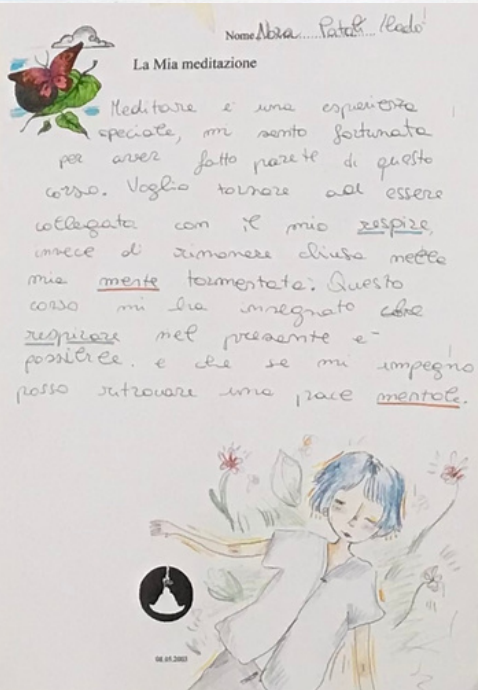 Nome Nora Patali
La Mia meditazione
Meditare è una esperienza
speciale, mi sento fortunata
per aver fatto parete di questo
corso. Voglio tornare ad essere
collegata con il mio respiro,
invece di rimanere chiusa nella
mia mente tormentata. Questo
corso mi ha insegnato che
respirare nel presente è
possibile. e che se mi impegno
posso ritrovare una pace mentale.
08.05.2003